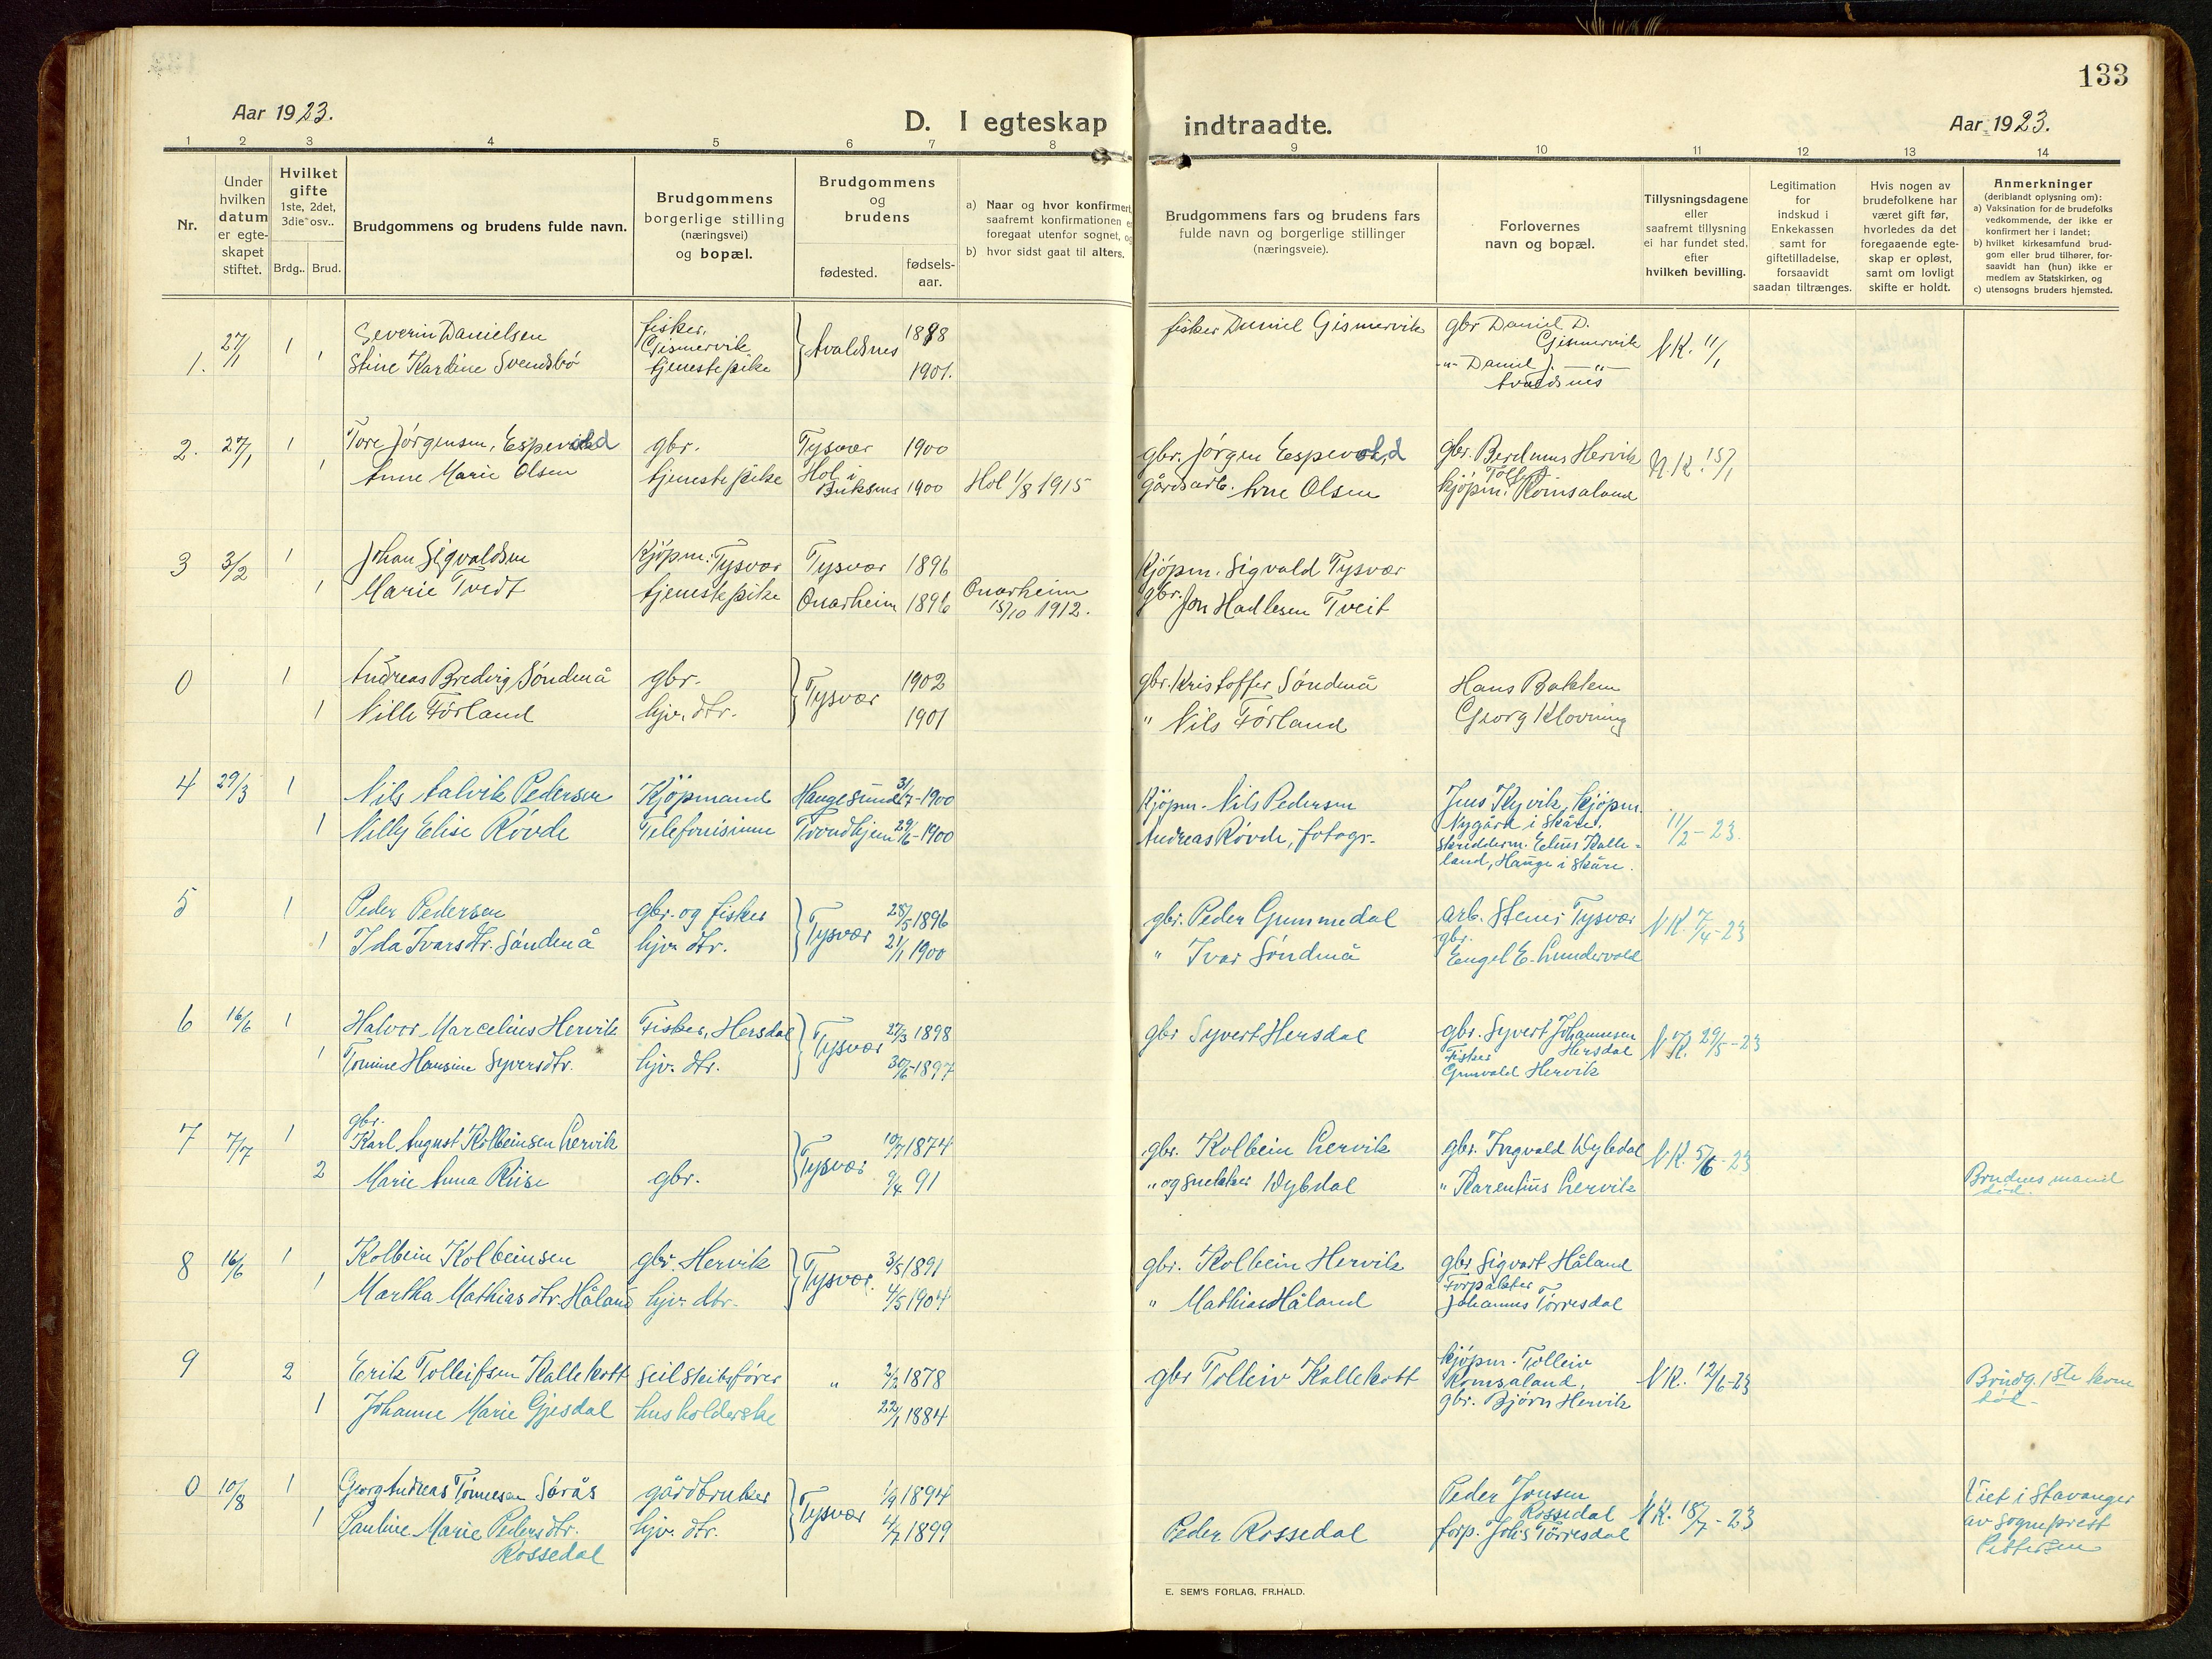 133
Aar 1923.
D. I egteskap indtraadte.
Aar 1923.
1 2 3 4 5 6 7 8 9 10 11 12 13 14
Nr.
Under hvilken datum er egte-skapet stiftet.
Hvilket gifte
1ste, 2det, 3die osv..
Brdg.. Brud.
Brudgommens og brudens fulde navn.
Brudgommens borgerlige stilling (næringsvei) og bopæl.
Brudgommens og brudens
fødested.
fødsels-aar.
a) Naar og hvor konfirmert, saafremt konfirmationen er foregaat utenfor sognet, og
b) hvor sidst gaat til alters.
Brudgommens fars og brudens fars fulde navn og borgerlige stillinger (næringsveie).
Forlovernes navn og bopæl.
Tillysningsdagene eller saafremt tillysning ei har fundet sted, efter hvilken bevilling.
Legitimation for indskud i Enkekassen samt for giftetilladelse, forsaavidt saadan tiltrænges.
Hvis nogen av brudefolkene har været gift før, hvorledes da det foregaaende egte-skap er opløst, samt om lovligt skifte er holdt.
Anmerkninger
(deriblandt oplysning om):
a) Vaksination for de brudefolks vedkommende, der ikke er konfirmert her i landet;
b) hvilket kirkesamfund brud-gom eller brud tilhører, for-saavidt han (hun) ikke er medlem av Statskirken, og
c) utensogns bruders hjemsted.
1. 27/1 1 Severin Danielsen fisker, Gismervik Avaldsnes 1898 fisker Daniel Gismervik gbr Daniel D. Gismervik N.K. 11/1
1 Stine Kardine Svendsbö tjenestepike 1901. -"- Daniel J. -"- Avaldsnes
2. 27/1 1 Tore Jörgensen, Espevold gbr. Tysvær 1900 gbr. Jörgen Espevold gbr. Berdinus Hervik N.K. 15/1
1 Anne Marie Olsen tjenestepike Hol i Buksnes 1900 Hol 1/8 1915 gårdsarb. Arne Olsen kjöpm. Tolleif Romsaland
3 3/2 1 Johan Sigvaldsen Kjöpm: Tysvær Tysvær 1896 Kjöpm. Sigvald Tysvær
1 Marie Tvedt tjenestepike Onarheim 1896 Onarheim 15/10 1912. gbr. Jon Hadlesen Tveit
0 1 Andreas Bredvig Söndenå gbr. Tysvær 1902 gbr. Kristoffer Söndenå Hans Bakken
1 Nille Förland hjv. dtr. 1901 " Nils Förland Georg Klovning
4 29/3 1 Nils Aalvik Pedersen Kjöpmand Haugesund 31/7-1900 Kjöpm. Nils Pedersen Jens Kyvik, kjöpm. Nygård i Skåre. 11/2-23.
1 Nilly Elise Rövde Telefonisinne Trondhjem 29/6-1900 Andreas Rövde, fotogr. Skredderm. Elius Kalle-land, Hauge i Skåre.
5 1 Peder Pedersen gbr. og fisker Tysvær 28/5 1896 gbr. Peder Gummedal arb. Stener Tysvær N.K. 7/4-23
1 Ida Ivarsdtr. Söndenå hjv. dtr. 21/1 1900 " Ivar Söndenå gbr. Engel E. Lundervold
6 16/6 1 Halvor Marcelius Hervik Fisker, Hersdal Tysvær 27/3 1898 gbr Syvert Hersdal gbr. Syvert Johannesen Hersdal N.K. 29/5-23
1 Tomine Hansine Syversdtr. hjv. dtr. 30/6-1897 Fisker Grunvald Hervik
7 7/7 1 gbr. Karl August Kolbeinsen Lervik Tysvær 10/7 1874 gbr. Kolbein Lervik gbr. Ingvald Dybdal N.K. 5/6-23
2 Marie Anna Riise gbr. 9/4 91 " og snekker Dybdal " Karenius Lervik Brudens mand död.
8 16/6 1 Kolbein Kolbeinsen gbr. Hervik Tysvær. 3/5 1891 gbr. Kolbein Hervik gbr Sigvart Håland
1 Martha Mathiasdtr. Håland hjv. dtr. 4/5 1904 " Mathias Håland Forpakter Johannes Törresdal
9 2 Erik Tolleifsen Kallekott seilskibsförer " 2/2 1878 gbr Tolleiv Kallekott kjöpm. Tolleiv Romsaland, N.K. 12/6-23 Brudg. 1ste kone död.
1 Johanne Marie Gjesdal husholderske 22/1 1884 gbr. Björn Hervik
0 10/8 1 Georg Andreas Tönnesen Sørås gårdbruker Tysvær 1/9 1894 Peder Jonsen Rossedal N.K. 18/7-23 Viet i Stavanger av sogneprest Pettersen
1 Pauline Marie Pedersdtr. Rossedal hjv. dtr. 4/7 1899 Peder Rossedal forp. Johs Törresdal
E. SEM'S FORLAG, FR.HALD.